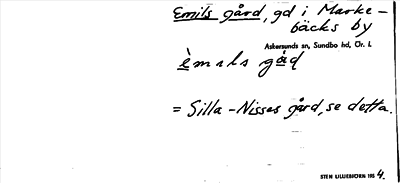 Emils gård, gd i Marke-
bäcks by
Askersunds sn, Sundbo hd, Ör. l.
èmıls gård
= Silla-Nisses gård, se detta.
STEN LILLIEHÖÖK 195 4.